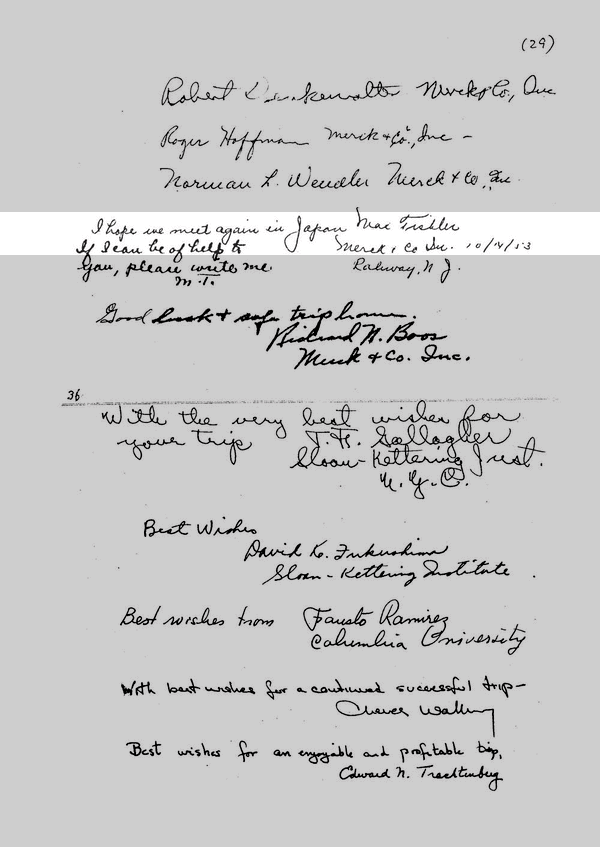 (29)
Robert Denkewalter Merck & Co., Inc
Roger Hoffman Merck & Co., Inc –
Norman L. Wendler Merck & Co., Inc.
I hope we meet again in Japan Max Tishler
If I can be of help to Merck & Co Inc. 10/14/53
you, please write me Rahway, N J.
M.T.
Good luck & safe trip home.
Richard H. Boos
Merck & Co. Inc.
36
With the very best wishes for
your trip T. F. Gallagher
Sloan-Kettering Inst.
N.Y.C.
Best Wishes
David K. Fukushima
Sloan-Kettering Institute
Best wishes from Fausto Ramirez
Columbia University
With best wishes for a continued successful trip –
Cheves Walling
Best wishes for an enjoyable and profitable trip,
Edward N. Trachtenberg